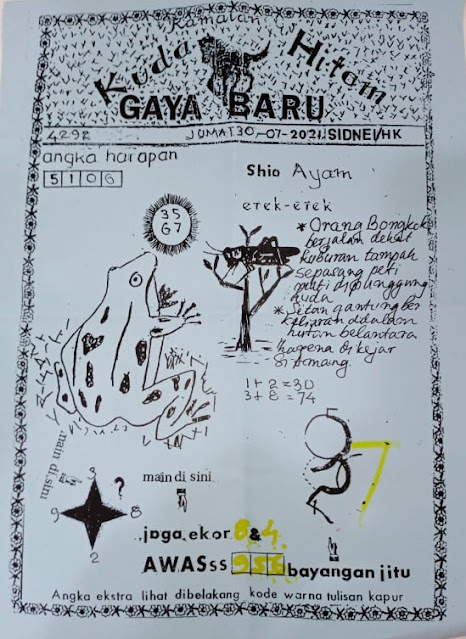 Ramalan
Kuda Hitam
GAYA BARU
4292 JUMAT 30-07-2021. SIDNEI/HK
angka harapan
5106
Shio Ayam
erek-erek
35
67
* Orang Bongkok
berjalan dekat
kuburan tampak
sepasang peti
mati dipunggung
kuda
* Setan gantung ber
keliaran didalam
hutan belantara
karena di kejar
1+2=30
3+8=74
main di sini
main di sini
3
?
9
8
2
7
jaga ekor 8&4.
AWASss 956 bayangan jitu
Angka ekstra lihat dibelakang kode warna tulisan kapur